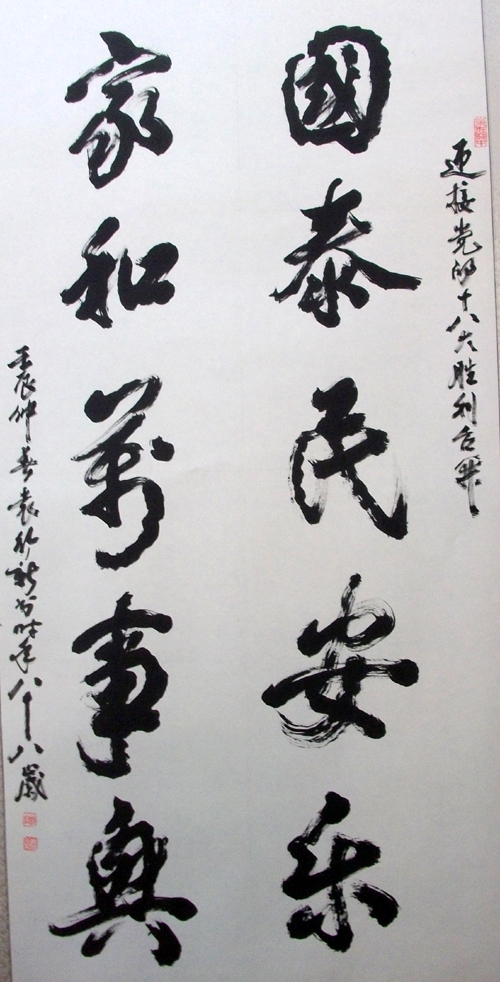 迎接党的十八大胜利召开
國泰民安乐
家和萬事興
壬辰仲春袁新书时年八十八歲